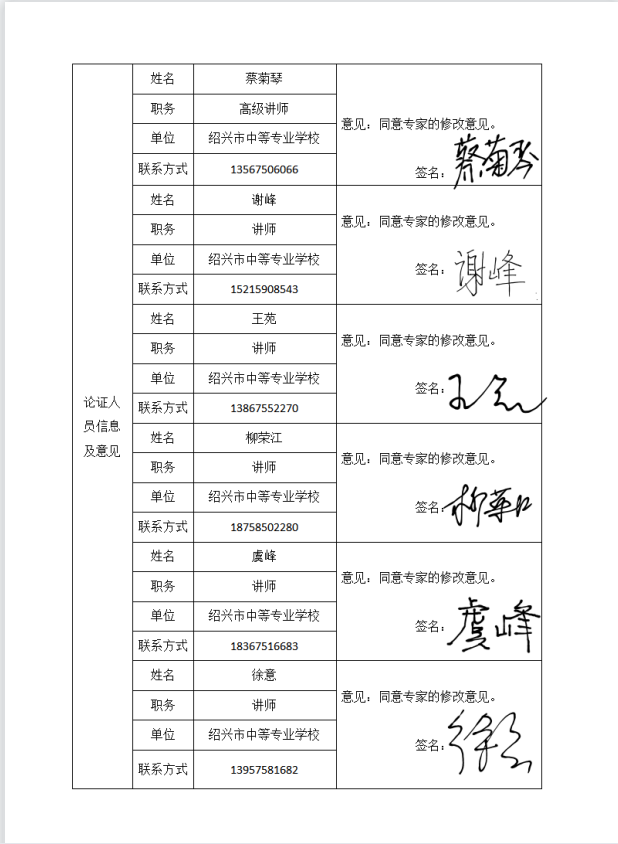 论证人
员信息
及意见
姓名 蔡菊琴
职务 高级讲师
单位 绍兴市中等专业学校
联系方式 13567506066
意见：同意专家的修改意见。
签名：蔡菊琴
姓名 谢峰
职务 讲师
单位 绍兴市中等专业学校
联系方式 15215908543
意见：同意专家的修改意见。
签名：谢峰
姓名 王苑
职务 讲师
单位 绍兴市中等专业学校
联系方式 13867552270
意见：同意专家的修改意见。
签名：王苑
姓名 柳荣江
职务 讲师
单位 绍兴市中等专业学校
联系方式 18758502280
意见：同意专家的修改意见。
签名：柳荣江
姓名 虞峰
职务 讲师
单位 绍兴市中等专业学校
联系方式 18367516683
意见：同意专家的修改意见。
签名：虞峰
姓名 徐意
职务 讲师
单位 绍兴市中等专业学校
联系方式 13957581682
意见：同意专家的修改意见。
签名：徐意